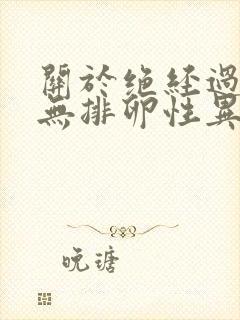 關於絕經過
無排卵性異
晚瑭